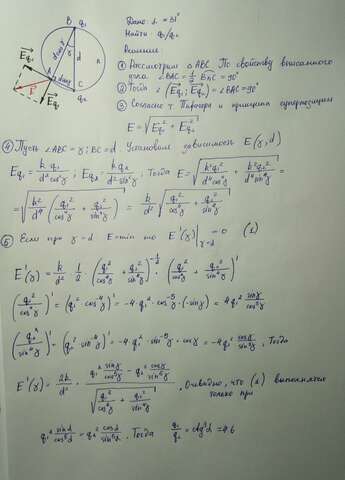 B q₁
Дано: α = 31°
Найти q₁/q₂
Решение
① Рассмотрим △ABC. По свойству вписанного
угла ∠BAC = ½ BAC = 90°
② Тогда ∠(Eq₁; Eq₂) = ∠BAC = 90°
③ Согласно т. Пифагора и принципа суперпозиции
E = √(Eq₁² + Eq₂²)
d
A
C
q₂
Eq₂
Eq₁
④ Пусть ∠ABC = γ; BC = d. Установим зависимость E(γ, d)
Eq₁ = kq₁/(d²cos²γ); Eq₂ = kq₂/(d²sin²γ); Тогда E = √(k²q₁²/(d⁴cos⁴γ) + k²q₂²/(d⁴sin⁴γ)) =
= √(k²/d⁴ (q₁²/cos⁴γ + q₂²/sin⁴γ)) = k/d² √(q₁²/cos⁴γ + q₂²/sin⁴γ)
⑤ Если при γ = α E = min то E'(γ)|γ=α = 0 (1)
E'(γ) = k/d² · 1/2 · (q₁²/cos⁴γ + q₂²/sin⁴γ)^(-1/2) · (q₁²/cos⁴γ + q₂²/sin⁴γ)'
(q₁²/cos⁴γ)' = (q₁² cos⁻⁴γ)' = -4·q₁²·cos⁻⁵γ·(-sinγ) = 4q₁² sinγ/cos⁵γ
(q₂²/sin⁴γ)' = (q₂² sin⁻⁴γ)' = -4·q₂²·sin⁻⁵γ·cosγ = -4q₂² cosγ/sin⁵γ; Тогда
E'(γ) = 2k/d² · (q₁² sinγ/cos⁵γ - q₂² cosγ/sin⁵γ)/√(q₁²/cos⁴γ + q₂²/sin⁴γ). Очевидно, что (1) выполнимо
только при
q₁² sinα/cos⁵α = q₂² cosα/sin⁵α. Тогда q₁/q₂ = ctg³α = 4.6